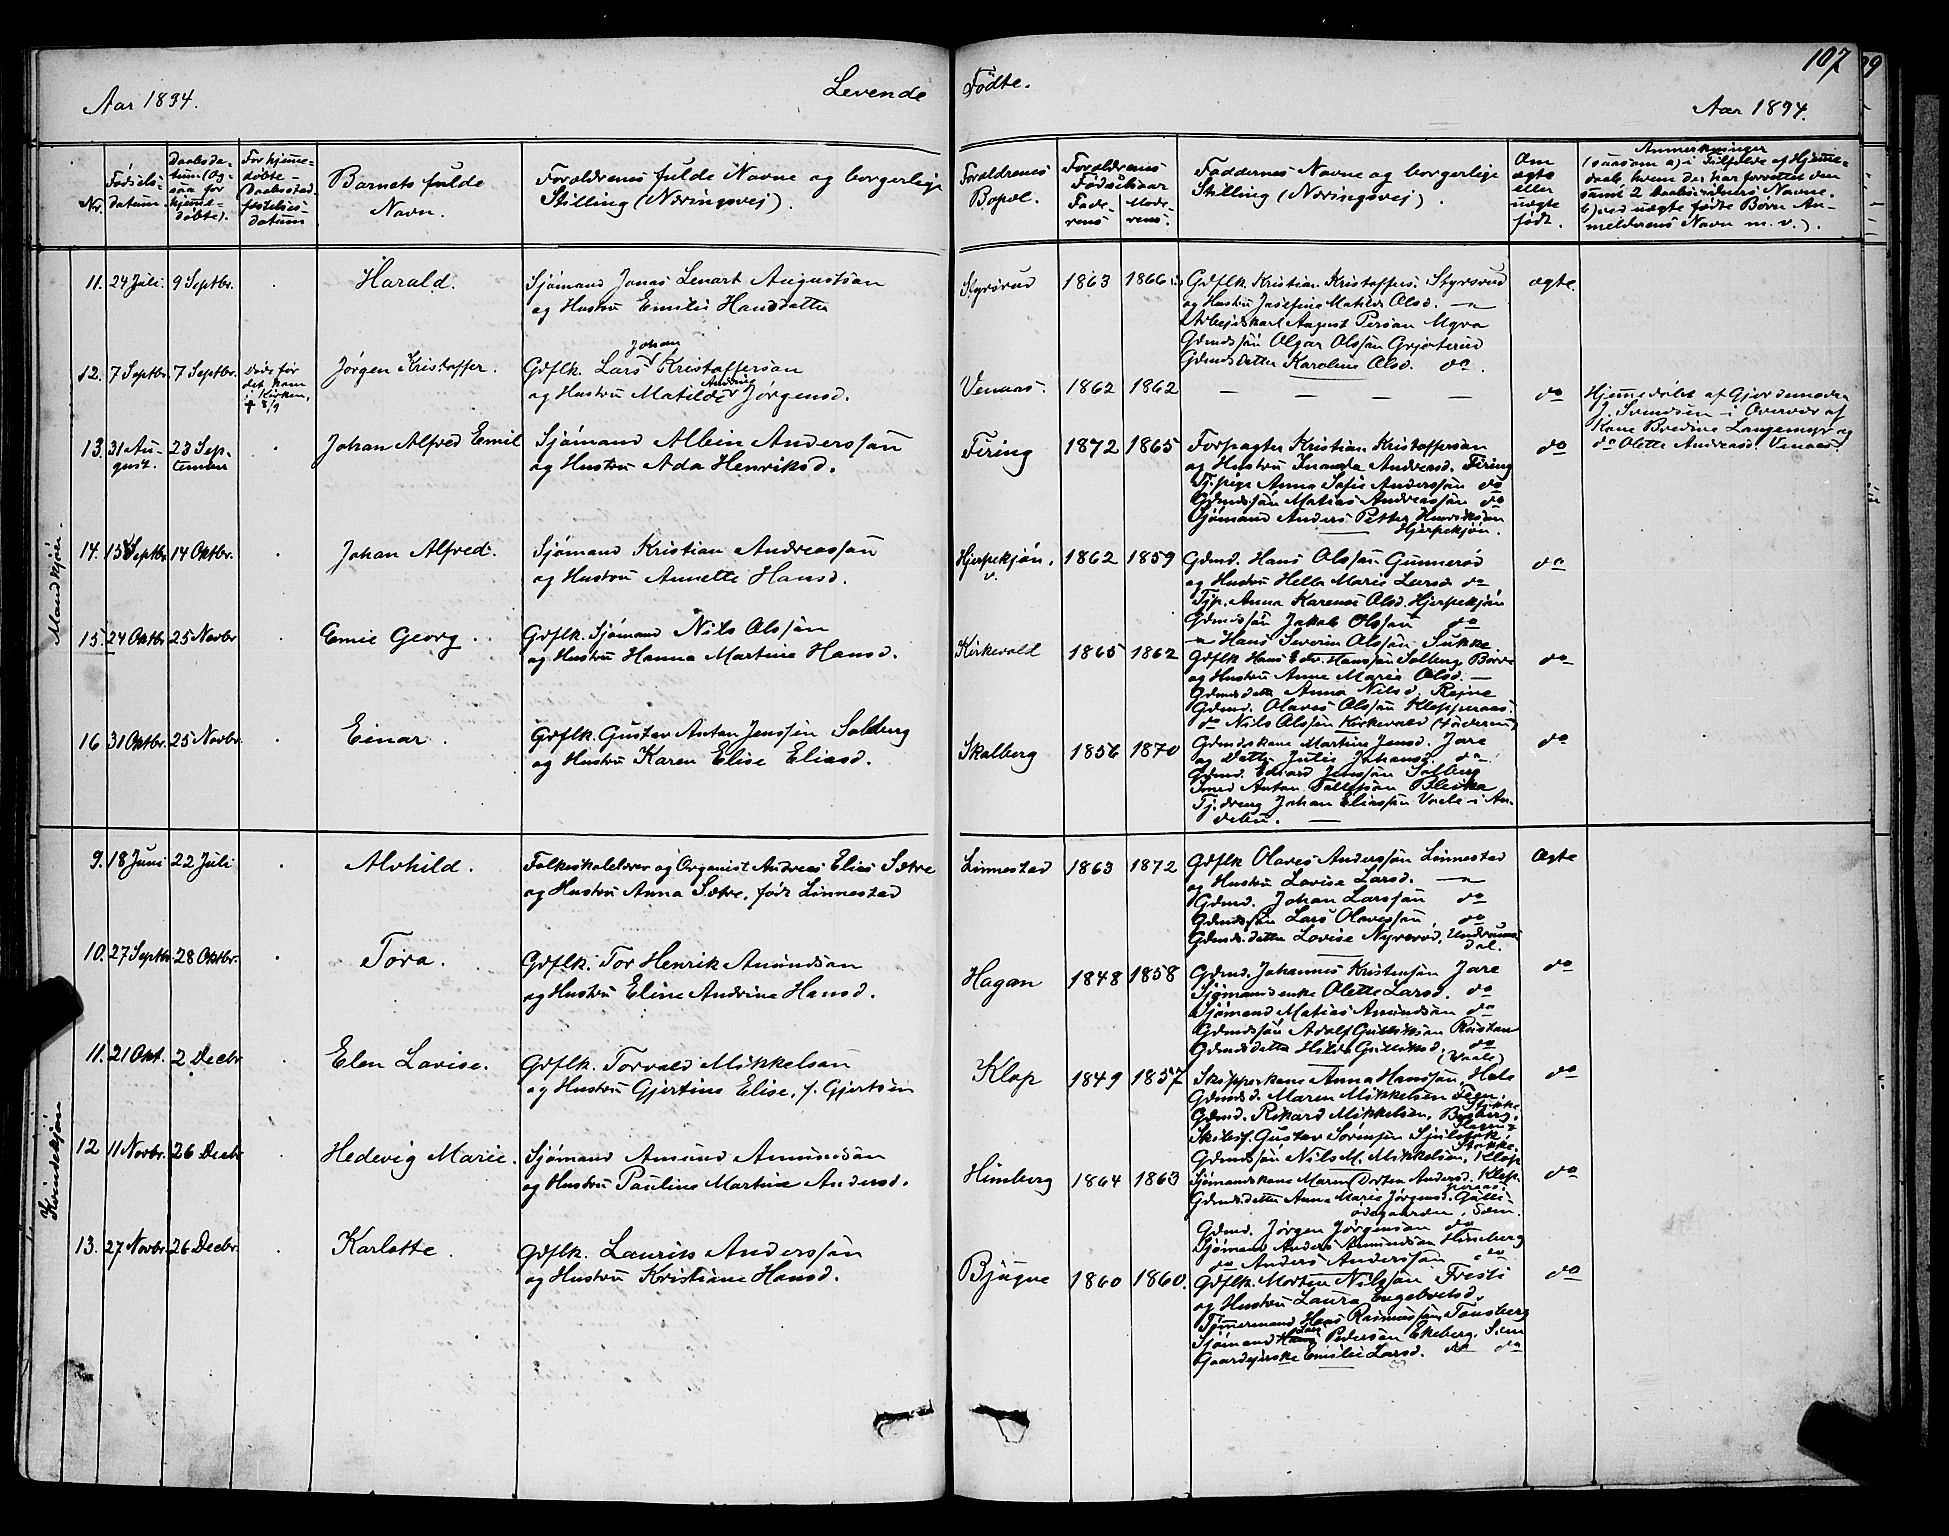 107
Aar 1894.
Levende
Fødte.
Aar 1894.
Nr.
Fødsels-
datum.
Daabsda-
tum (og-
saa for
hjemme-
døbte).
For hjemme-
døbte -
Daabsstad-
fæstelses-
datum
Barnets fulde
Navn.
Forældrenes fulde Navne og borgerlige
Stilling (Næringsvej).
Forældrenes
Bopæl.
Forældrenes
Fødselsaar
Fade-
rens
Mode-
rens.
Faddernes Navne og borgerlige
Stilling (Næringsvej).
Om
ægte
eller
uægte
født.
Anmerkninger
(saasom a) i Tilfælde af Hjemme-
daab, hvem der har forrettet den
samt 2 Daabsvidners Navne.
b) ved uægte fødte Børn An-
melderens Navn m. v.).
Mandkjøn.
11. 24 Juli. 9 Septbr. Harald.
Sjømand Jonas Lenart Augustsøn
og Hustru Emilie Hansdatter
Styrsrud 1863 1866
Gdflk Kristian Kristoffers. Styrsrud
og Hustru Josefine Matilde Olsd. —"—
Arbejdskarl August Persøn Myra
Gdmdssøn Olgar Olssøn Grjøterud
Gdmdsdatter Karoline Olsd. do.
ægte.
12. 7 Septbr. 7 Septbr.
Døde før
det kom
i Kirken,
† 8/9
Jørgen Kristoffer.
Gdflk. Lars Johan Kristoffersøn
og Hustru Matilde Andrine Jørgensd.
Venaas. 1862 1862
— — — —
do
Hjemmedøbt af Gjordemoder
J. Svendsen i Overvær af
Kone Bredine Langemyr og
do Olette Andreasd. Venaas.
13. 31 Au-
gust.
23 Sep-
tember
Johan Alfred Emil
Sjømand Albin Anderssøn
og Hustru Ada Henriksd.
Firing 1872 1865
Forpagter Kristian Kristoffersøn
og Hustru Andreasd. Firing
Tj.pige Anna Sofie Anderssøn do
Gdmdssøn Matias Andreassøn do
Sjømand Anders Petter Henriksøn
Hjerpekjøn.
do
14. 15 Septbr 14 Oktbr. Johan Alfred.
Sjømand Kristian Andreassøn
og Hustru Annette Hansd.
Hjerpekjøn. 1862 1859
Gdmd. Hans Olssøn Gunnerød
og Hustru Helle Marie Larsd. do
Tjp. Anna Karense Olsd. Hjerpekjøn
Gdmdssøn Jakob Olssøn do
—"— Hans Severin Olssøn Sukke
do
15. 24 Oktbr 25 Novbr Emil Georg.
Gdflk. Sjømand Nils Olssøn
og Hustru Hanna Martine Hansd.
Kirkevold 1865 1862
Gdflk Hans Edv. Hanssøn Solberg, Borre
og Hustru Anne Marie Olsd. —
Gdmdsdatter Anna Nilsd. Rejne
Gdmd. Olaves Olssøn Klopperaas.
do Nils Olssøn Kirkevold (Faderen)
do
16 31 Oktbr. 25 Novbr. Einar.
Gdflk. Gustav Anton Jenssøn Solberg
og Hustru Karen Elise Eliasd.
Skalberg 1856 1870
Gdmdskone Martine Jensd. Jare
og Datter Julie Johansd. do
Gdmd. Edvard Jenssøn Solberg
Smed Anton Tollefsøn Bleika
Tj.dreng Johan Eliassøn Vaale i An-
debu. —
do
Kvindekjøn.
9. 18 Juni 22 Juli Alvhild.
Folkeskolelærer og Organist Andreas Elias Sætre
og Hustru Anna Sætre, født Linnestad
Linnestad 1863 1872
Gdflk Olaves Anderssøn Linnestad
og Hustru Lovise Larsd. —"—
Gdmd. Johan Larssøn do
Gdmdssøn Lars Olavessøn do
Gdmdsdatter Lovise Nyrerød, Undrums-
dal.
Ægte
10. 27 Septbr 28 Oktbr. Tora.
Gdflk. Tor Henrik Amundsøn
og Hustru Eline Andrine Hansd.
Hagan 1848 1858
Gdmd. Johannes Kristensøn Jare
Sjømandsenke Olette Larsd. do
Sjømand Matias Amundsøn do
Gdmdssøn Adolf Gulliksøn Røistan
Gdmdsdatter Hilda Gulliksd. do
(Vaale)
do
11. 21 Okt. 2 Decbr Elen Lovise.
Gdflk. Torvald Mikkelsøn
og Hustru Gjertine Elise, f. Gjertsen
Klop 1849 1857
Skipperkone Anna Hanssøn, Hals
Gdmdsd. Maren Mikkelsen Fegn,
Stokke
Gdmd. Rikard Mikkelsen, Bugberg,
Skolesf. Gustav Sørensen
Stokke
Gdmdssøn Nils M. Mikkelsen, Klop
do
12 11 Novbr. 26 Decbr Hedevig Marie.
Sjømand Amund Amundsøn
og Hustru Pauline Martine Andersd.
Himberg 1864 1863
Sjømandskone Maren Dorten Andersd. Klop-
peraas.
Gdmdsdatter Anna Marie Jørgensd. Galli-
ødegaarden, Sem.
Gdmd. Jørgen Jørgensøn do
Sjømand Anders Amundsøn Himberg
do Anders Anderssøn do
do
13. 27 Novbr. 26 Decbr. Karlotte.
Gdflk. Laurits Anderssøn
og Hustru Kristiane Hansd.
Bjugne 1860 1860.
Gdflk. Morten Nilssøn Fresti
og Hustru Laura Engebretsd.
Tømmermand Hans Rasmussøn, Tønsberg
Sjømand Lars Pedersøn Ekeberg, Sem
Gaardejerske Emilie Larsd. do do
do